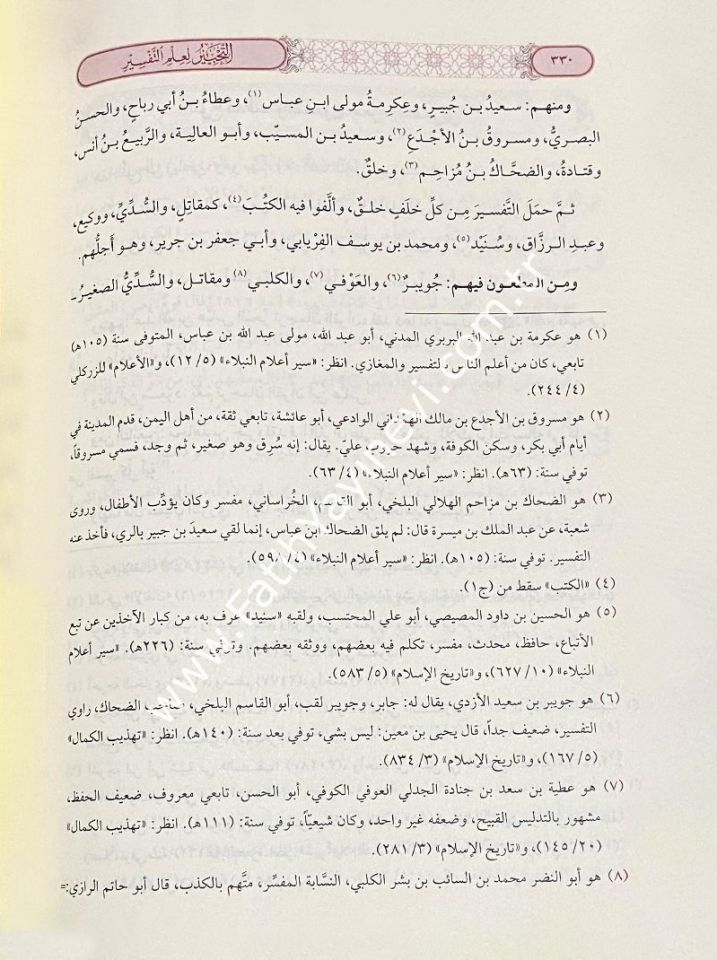 ٣٣٠
التحبير لعلم التفسير
ومنهم: سعيدُ بن جُبيرٍ، وعِكرِمةُ مولى ابنِ عباس(١)، وعطاءُ بنُ أبي رباحٍ، والحسنُ
البصريُّ، ومسروق بنُ الأجْدَعِ(٢)، وسعيدُ بن المسيّب، وأبو العالية، والرَّبيعُ بنُ أنس،
وقتادةُ، والضحّاكُ بنُ مُزاحِمٍ(٣)، وخلقٌ.
ثمَّ حمَلَ التَّفسيرَ مِن كلِّ خلَفٍ خلقٌ، وألَّفوا فيه الكتُبَ(٤)، كمقاتِلٍ، والسُّديِّ، ووكيع،
وعبدِ الرزَّاق، وسُنَيْد(٥)، ومحمد بن يوسف الفِريابي، وأبي جعفر بن جرير، وهو أجلُّهم.
ومِن المطعون فيهم: جُويبرٌ(٦)، والعَوْفي(٧)، والكلبي(٨) ومقاتل، والسُّديُّ الصغيرُ ـ
(١) هو عكرمة بن عبد الله البربري المدني، أبو عبد الله، مولى عبد الله بن عباس، المتوفى سنة (١٠٥هـ)
تابعي، كان من أعلم الناس بالتفسير والمغازي. انظر: «سير أعلام النبلاء» (٥/ ١٢)، و«الأعلام» للزركلي
(٤/ ٢٤٤).
(٢) هو مسروق بن الأجدع بن مالك الهمْداني الوادعي، أبو عائشة، تابعي ثقة، من أهل اليمن، قدم المدينة في
أيام أبي بكر، وسكن الكوفة، وشهد حروب عليّ. يقال: إنه سُرِق وهو صغير، ثم وجد، فسمي مسروقاً،
توفي سنة: (٦٣هـ). انظر: «سير أعلام النبلاء» (٤/ ٦٣).
(٣) هو الضحاك بن مزاحم الهلالي البلخي، أبو القاسم، الخُراساني، مفسر وكان يؤدِّب الأطفال، وروى
شعبة، عن عبد الملك بن ميسرة قال: لم يلق الضحاك ابنَ عباس، إنما لقي سعيدَ بن جبير بالري، فأخذ عنه
التفسير. توفي سنة: (١٠٥هـ). انظر: «سير أعلام النبلاء» (٤/ ٥٩٨).
(٤) «الكتب» سقط من (ج١).
(٥) هو الحسين بن داود المصيصي، أبو علي المحتسب، ولقبه «سنيد» عرف به، من كبار الآخذين عن تبع
الأتباع، حافظ، محدث، مفسر، تكلم فيه بعضهم، ووثقه بعضهم. وتوفي سنة: (٢٢٦هـ). «سير أعلام
النبلاء» (١٠/ ٦٢٧)، و«تاريخ الإسلام» (٥/ ٥٨٣).
(٦) هو جويبر بن سعيد الأزدي، يقال له: جابر، وجويبر لقب، أبو القاسم البلخي، صاحب الضحاك، راوي
التفسير، ضعيف جداً، قال يحيى بن معين: ليس بشي، توفي بعد سنة: (١٤٠هـ). انظر: «تهذيب الكمال»
(٥/ ١٦٧)، و«تاريخ الإسلام» (٣/ ٨٣٤).
(٧) هو عطية بن سعد بن جنادة الجدلي العوفي الكوفي، أبو الحسن، تابعي معروف، ضعيف الحفظ،
مشهور بالتدليس القبيح، وضعفه غير واحد، وكان شيعيّاً، توفي سنة: (١١١هـ). انظر: «تهذيب الكمال»
(٢٠/ ١٤٥)، و«تاريخ الإسلام» (٣/ ٢٨١).
(٨) هو أبو النضر محمد بن السائب بن بشر الكلبي، النسابة المفسِّر، متَّهم بالكذب، قال أبو حاتم الرازي:=
www.Fatihyayinevi.com.tr